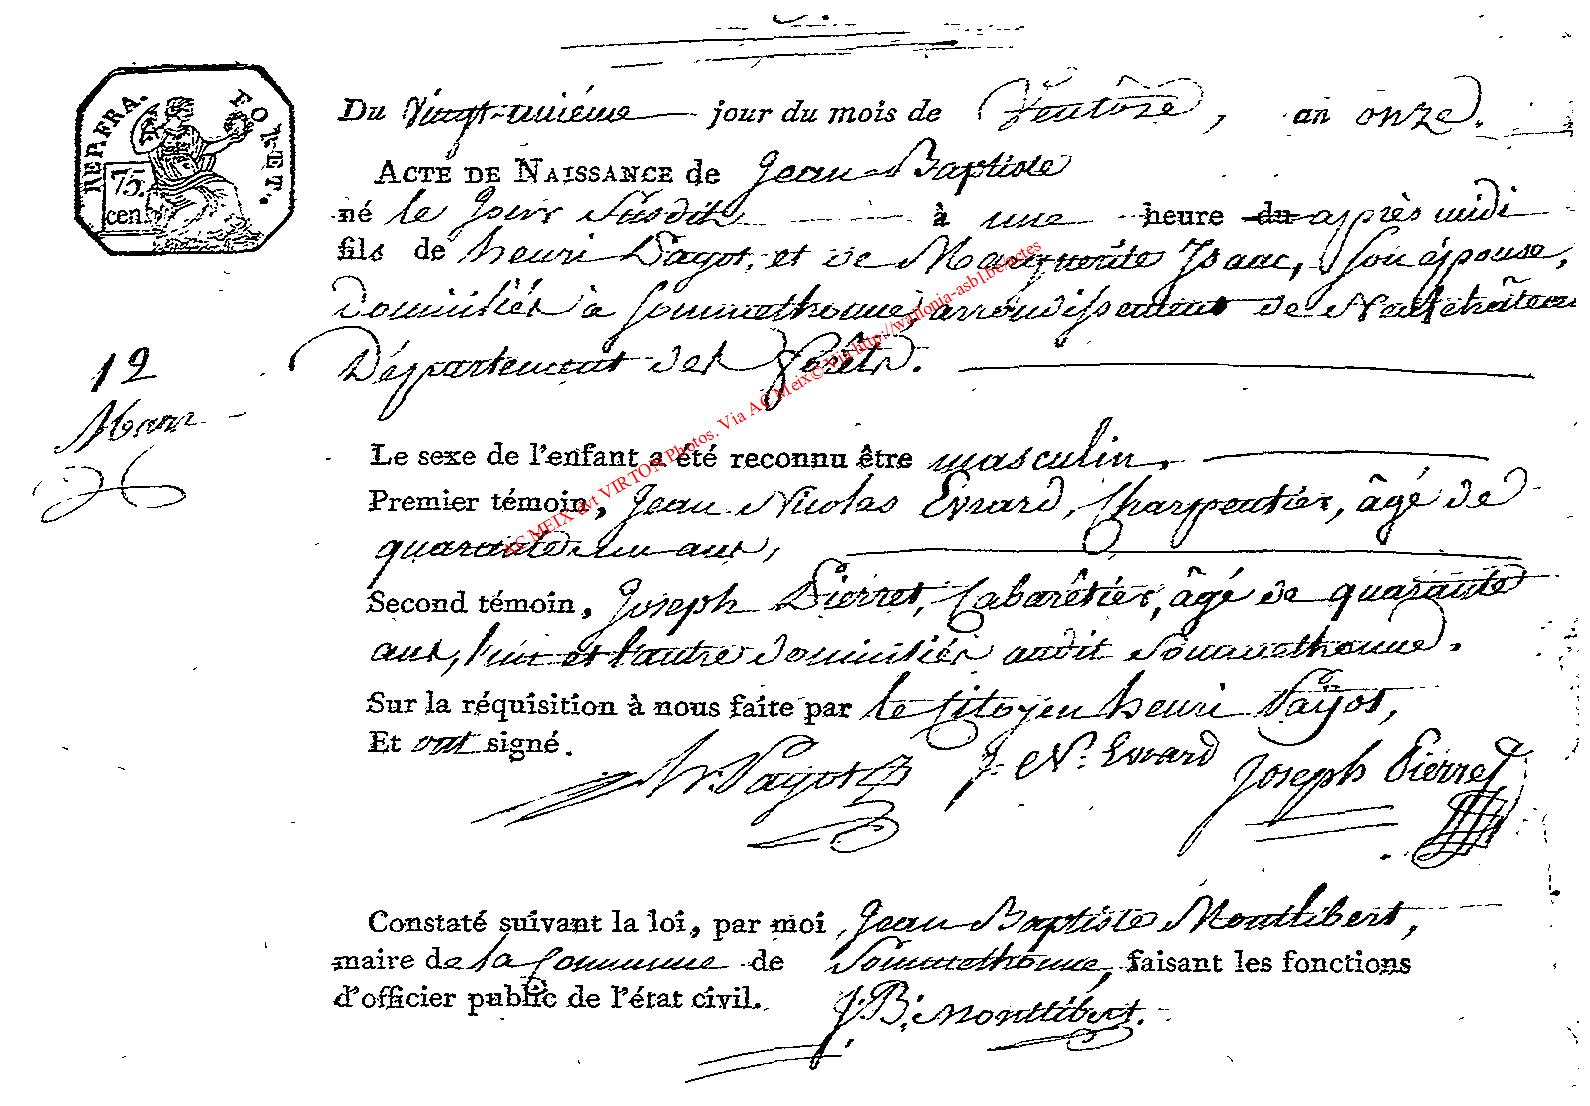 REP. FRA. FORET.
75. cen.
Du Vingt-unième jour du mois de Ventôse, an onze.
ACTE DE NAISSANCE de Jean Baptiste
né le jour susdit à une heure du après midi
fils de henri Payot, et de Marguerite Isaac, son épouse,
domiciliés à Sommethonne arrondissement de Neufchâteau
Département des forêts.
12
Mars
Le sexe de l'enfant a été reconnu être masculin.
Premier témoin, Jean Nicolas Evrard, Charpentier, âgé de
quarante un ans,
Second témoin, Joseph Pierret, Cabarêtier, âgé de quarante
ans, l'un et l'autre domiciliés audit Sommethonne.
Sur la réquisition à nous faite par le Citoyen henri Payot,
Et ont signé.
h. Payot J. N. Evrard Joseph Pierret
Constaté suivant la loi, par moi Jean Baptiste Montlibert,
maire de la Commune de Sommethonne, faisant les fonctions
d'officier public de l'état civil.
J. B. Montlibert.
AC MEIX avt VIRTON Photos. Via AC Meix© Via http://wallonia-asbl.be/actes